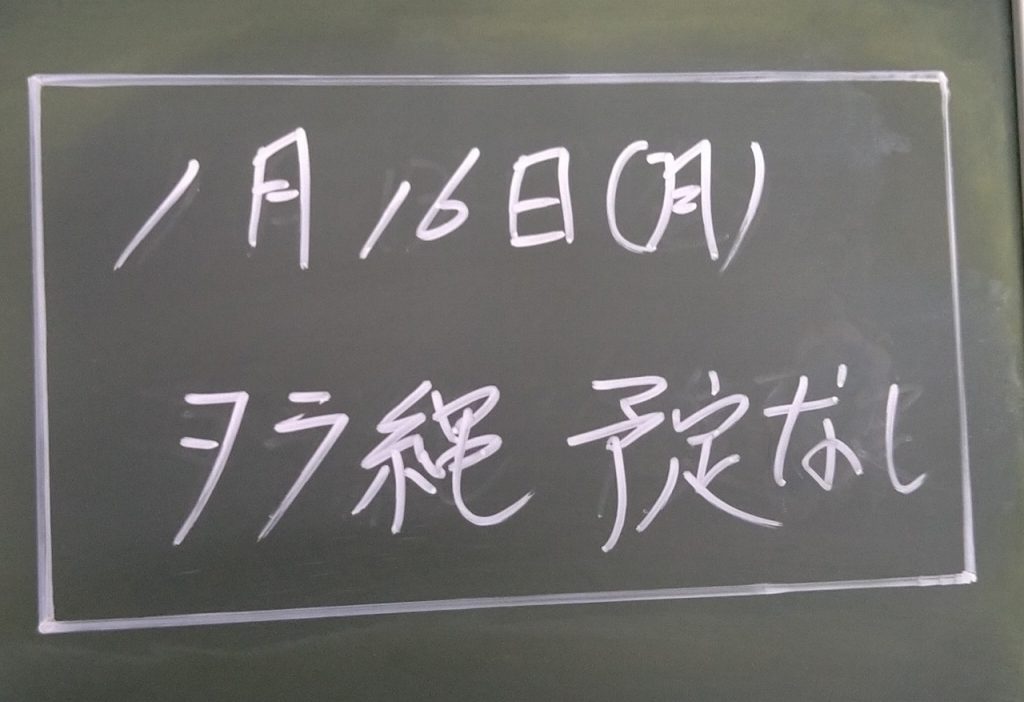 1月16日(月)
ヲラ縄 予定なし